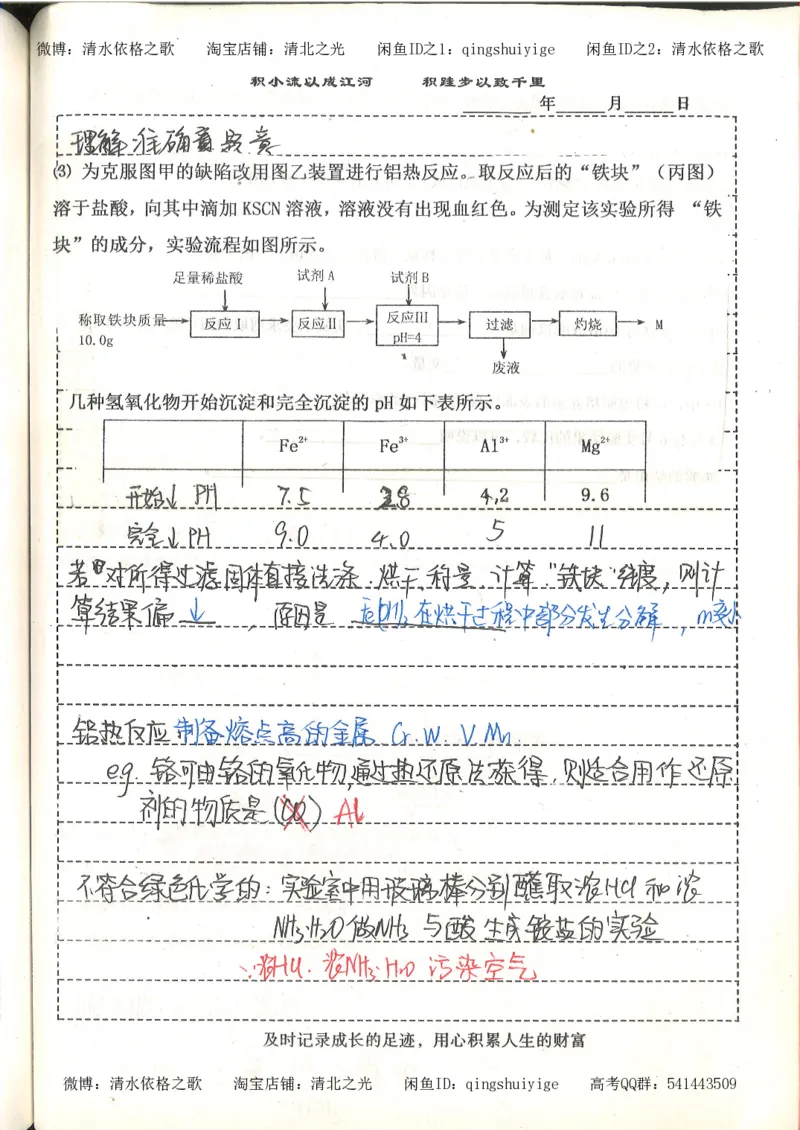 微博：清水依格之歌 淘宝店铺：清北之光 闲鱼ID之1：qingshuiyige 闲鱼ID之2：清水依格之歌
积小流以成江河 积跬步以致千里
年 月 日
理解准确真实意
(3) 为克服图甲的缺陷改用图乙装置进行铝热反应。取反应后的“铁块”（丙图）
溶于盐酸，向其中滴加 KSCN 溶液，溶液没有出现血红色。为测定该实验所得 “铁
块”的成分，实验流程如图所示。
足量稀盐酸 试剂A 试剂B
称取铁块质量 10.0g 反应Ⅰ 反应Ⅱ 反应Ⅲ pH=4 过滤 灼烧 M
废液
几种氢氧化物开始沉淀和完全沉淀的 pH 如下表所示。
Fe²⁺ Fe³⁺ Al³⁺ Mg²⁺
开始↓ PH 7.5 2.8 4.2 9.6
完全↓PH 9.0 4.0 5 11
若对所得过滤固体直接洗涤.烘干.称量.计算“铁块”纯度，则计
算结果偏 ↓ ，原因是 在烘干过程中部分发生分解，m变小
铝热反应 制备熔点高的金属 Cr.W.V.Mn.
eg. 铬可由铬的氧化物,通过热还原法获得,则适合用作还原
剂的物质是(CO) Al
不符合绿色化学的：实验室中用玻璃棒分别蘸取浓HCl和浓
NH₃·H₂O做NH₃与酸生成铵盐的实验
∵浓HCl.浓NH₃·H₂O 污染空气
及时记录成长的足迹，用心积累人生的财富
微博：清水依格之歌 淘宝店铺：清北之光 闲鱼ID：qingshuiyige 高考QQ群：541443509